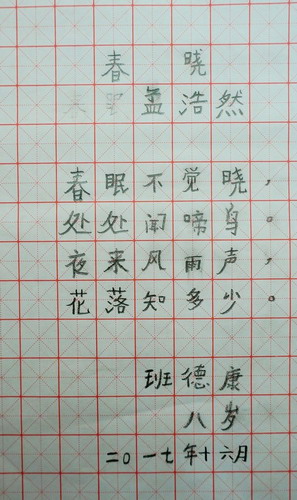 春晓
孟浩然
春眠不觉晓，
处处闻啼鸟。
夜来风雨声，
花落知多少。
班德康
八岁
二〇一七年十六月